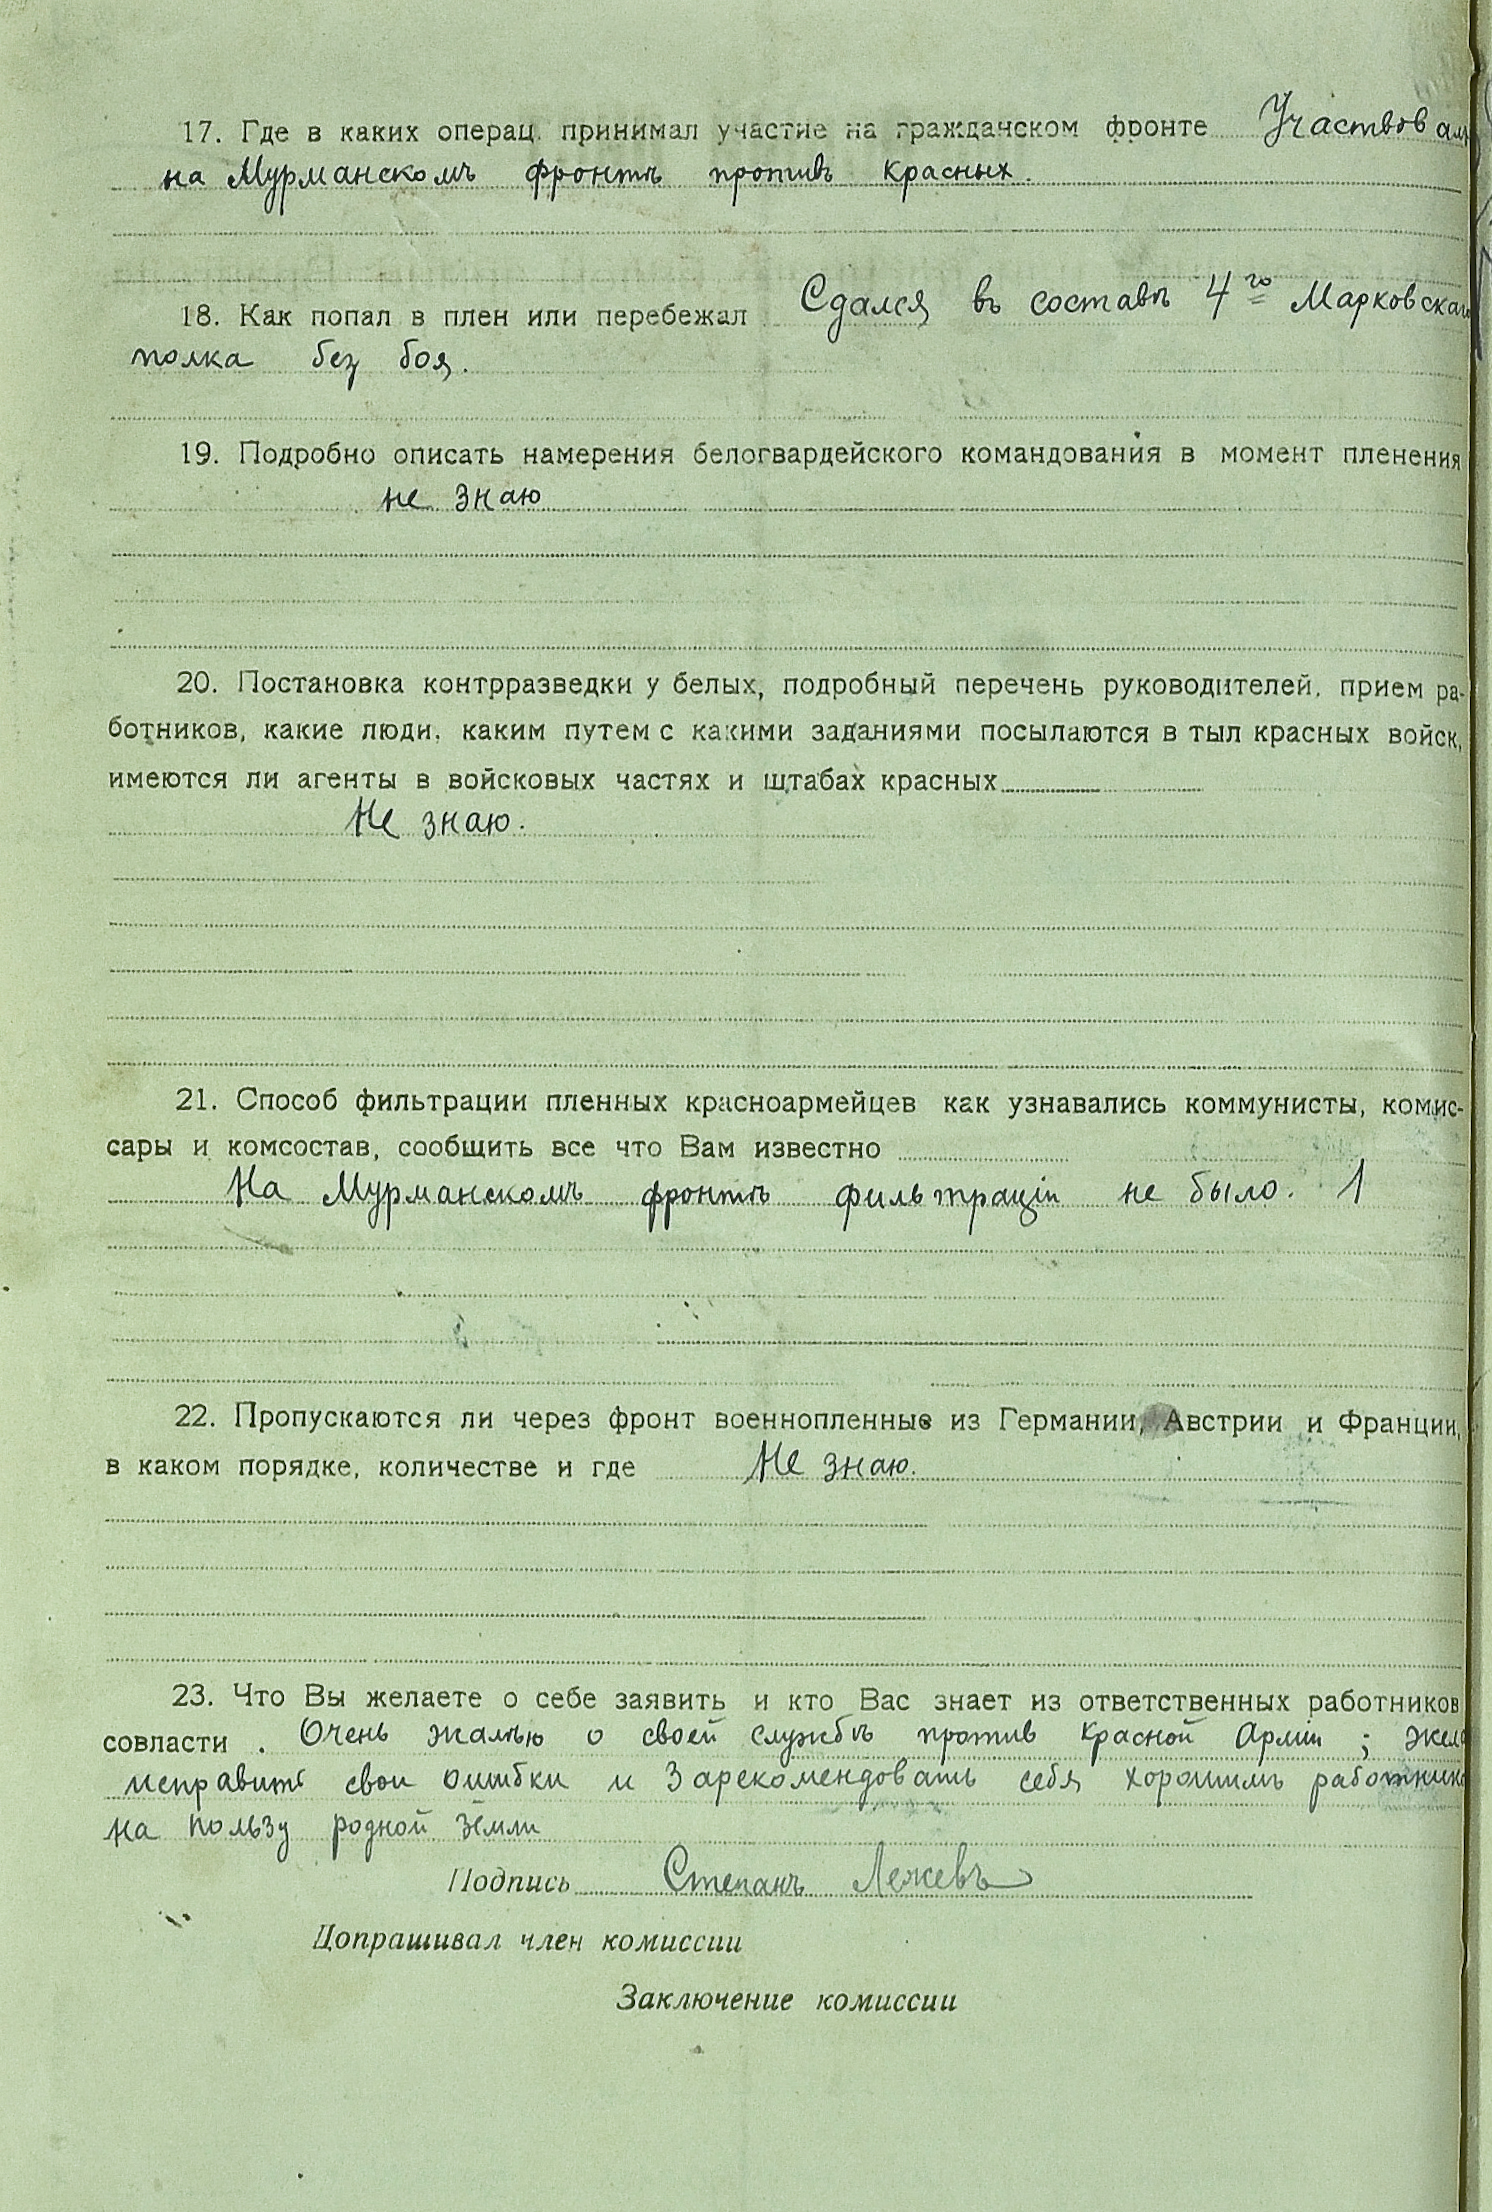 17. Где в каких операц. принимал участие на гражданском фронте Участвовалъ
на Мурманскомъ фронтѣ противъ красных.
18. Как попал в плен или перебежал Сдался въ составѣ 4го Марковскаго
полка без боя.
19. Подробно описать намерения белогвардейского командования в момент пленения
не знаю
20. Постановка контрразведки у белых, подробный перечень руководителей, прием ра-
ботников, какие люди, каким путем с какими заданиями посылаются в тыл красных войск,
имеются ли агенты в войсковых частях и штабах красных
Не знаю.
21. Способ фильтрации пленных красноармейцев как узнавались коммунисты, комис-
сары и комсостав, сообщить все что Вам известно
На Мурманскомъ фронтѣ фильтраціи не было. 1
22. Пропускаются ли через фронт военнопленные из Германии, Австрии и Франции,
в каком порядке, количестве и где Не знаю.
23. Что Вы желаете о себе заявить и кто Вас знает из ответственных работников
совласти . Очень жалѣю о своей службѣ против Красной Арміи ;
исправить свои ошибки и Зарекомендовать себя хорошимъ
на пользу родной земли
Подпись Степанъ
Допрашивал член комиссии
Заключение комиссии